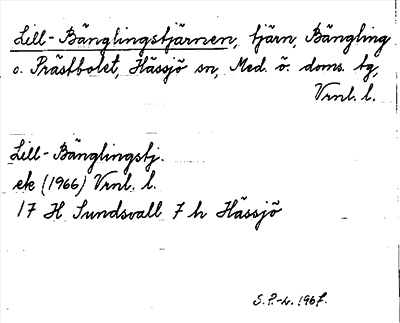 Lill-Bänglingstjärnen, tjärn, Bängling
o. Prästbolet, Hässjö sn, Med. ö. doms. tg,
Vrnl. l.
Lill-Bänglingstj.
ek (1966) Vrnl. l.
17 H Sundsvall 7 h Hässjö
S.P.-L. 1967.